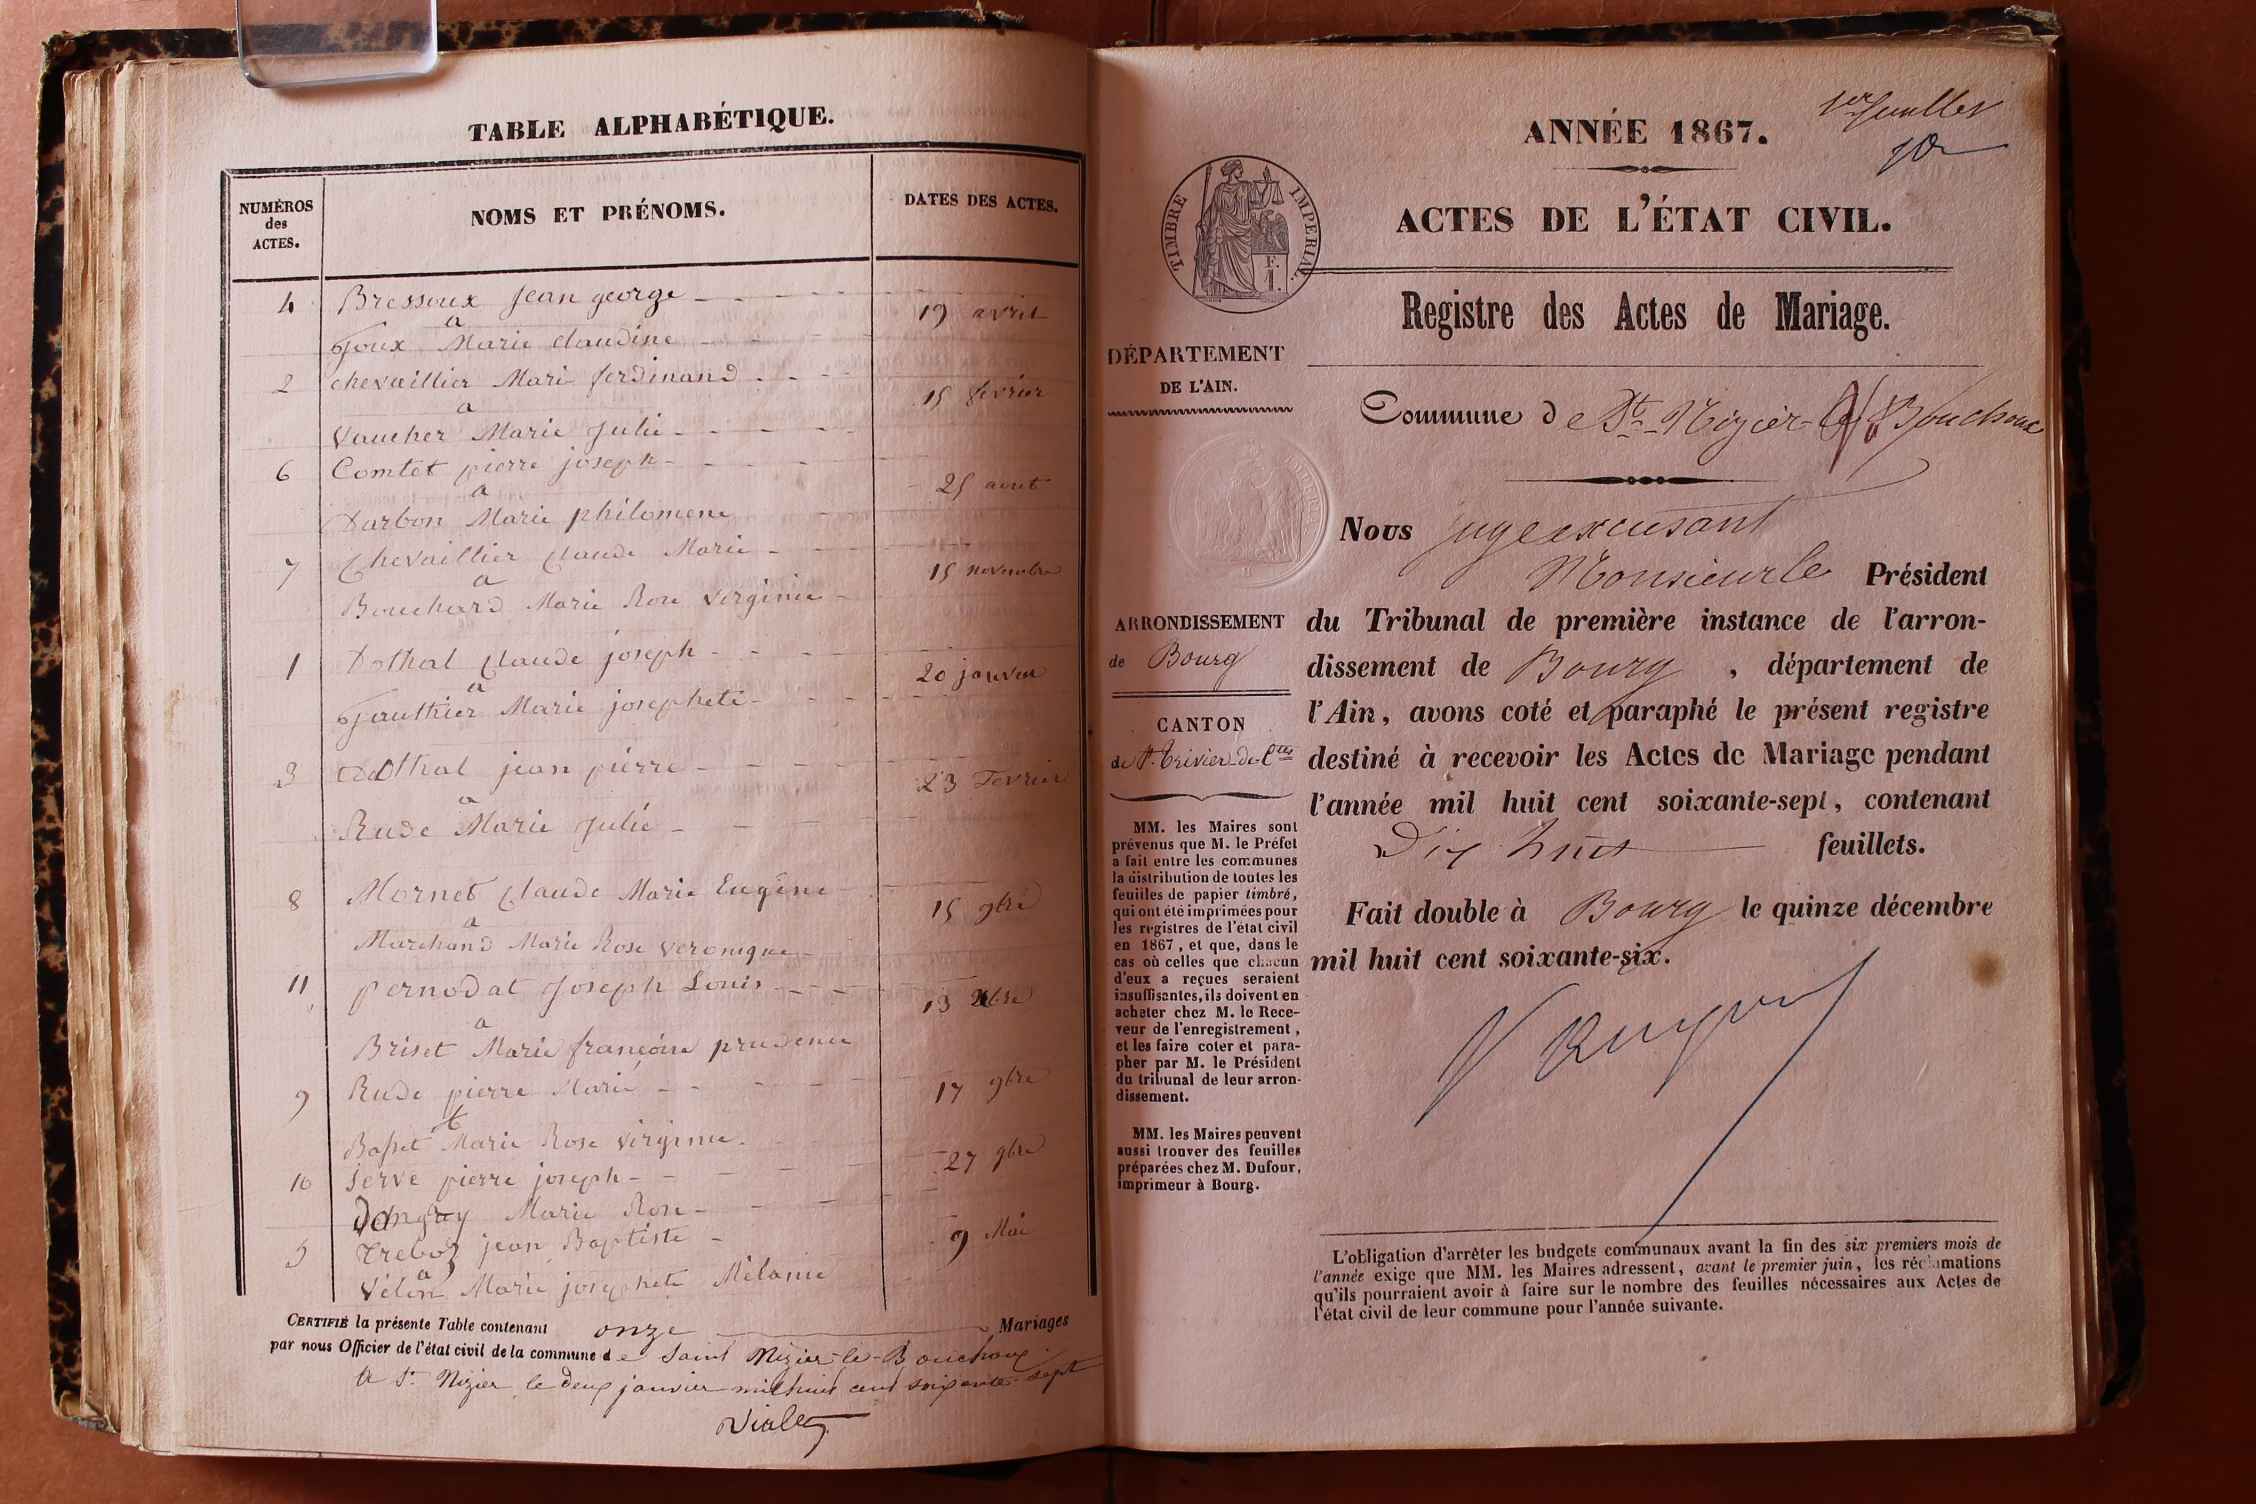 TABLE ALPHABÉTIQUE.
NUMÉROS des ACTES.
NOMS ET PRÉNOMS.
DATES DES ACTES.
4 Bressoux Jean george
19 avril
a
Goux Marie claudine
2 chevaillier Mari ferdinand
15 février
a
Vaucher Marie Julie
6 Comtet pierre joseph
25 aout
a
Darbon Marie philomene
7 Chevaillier Claude Marie
15 novembre
a
Bouchard Marie Rose Virginie
1 Dothal Claude joseph
20 janvier
a
Gauthier Marie josephete
3 Dothal jean pierre
23 Fevrier
a
Rude Marie Julie
8 Mornet Claude Marie Eugène
15 9bre
a
Marchand Marie Rose Veronique
11 pernodat Joseph Louis
13 Xbre
a
Briset Marie françoise prudence
9 Rude pierre Marie
17 9bre
Basset Marie Rose Virginie
27 9bre
10 Serve pierre joseph
Danguy Marie Rose
5 Treboz jean Baptiste
9 Mai
a
Vélon Marie josephete Mélanie
CERTIFIÉ la présente Table contenant onze Mariages
par nous Officier de l'état civil de la commune de Saint Nizier-le-Bouchoux.
A St. Nizier le deux janvier mil huit cent soixante-sept
Violet
1er feuillet
ANNÉE 1867.
ACTES DE L'ÉTAT CIVIL.
TIMBRE IMPERIAL.
F. 1.
Registre des Actes de Mariage.
DÉPARTEMENT
DE L'AIN.
Commune de St-Nizier-le-Bouchoux
Nous juge excusant
Monsieur le Président
ARRONDISSEMENT
de Bourg
CANTON
de St. Trivier-de-Ctes
du Tribunal de première instance de l'arron-
dissement de Bourg, département de
l'Ain, avons coté et paraphé le présent registre
destiné à recevoir les Actes de Mariage pendant
l'année mil huit cent soixante-sept, contenant
Dix huit feuillets.
Fait double à Bourg le quinze décembre
mil huit cent soixante-six.
MM. les Maires sont
prévenus que M. le Préfet
a fait entre les communes
la distribution de toutes les
feuilles de papier timbré,
qui ont été imprimées pour
les registres de l'état civil
en 1867, et que, dans le
cas où celles que chacun
d'eux a reçues seraient
insuffisantes, ils doivent en
acheter chez M. le Rece-
veur de l'enregistrement,
et les faire coter et para-
pher par M. le Président
du tribunal de leur arron-
dissement.
MM. les Maires peuvent
aussi trouver des feuilles
préparées chez M. Dufour,
imprimeur à Bourg.
L'obligation d'arrêter les budgets communaux avant la fin des six premiers mois de
l'année exige que MM. les Maires adressent, avant le premier juin, les réclamations
qu'ils pourraient avoir à faire sur le nombre des feuilles nécessaires aux Actes de
l'état civil de leur commune pour l'année suivante.